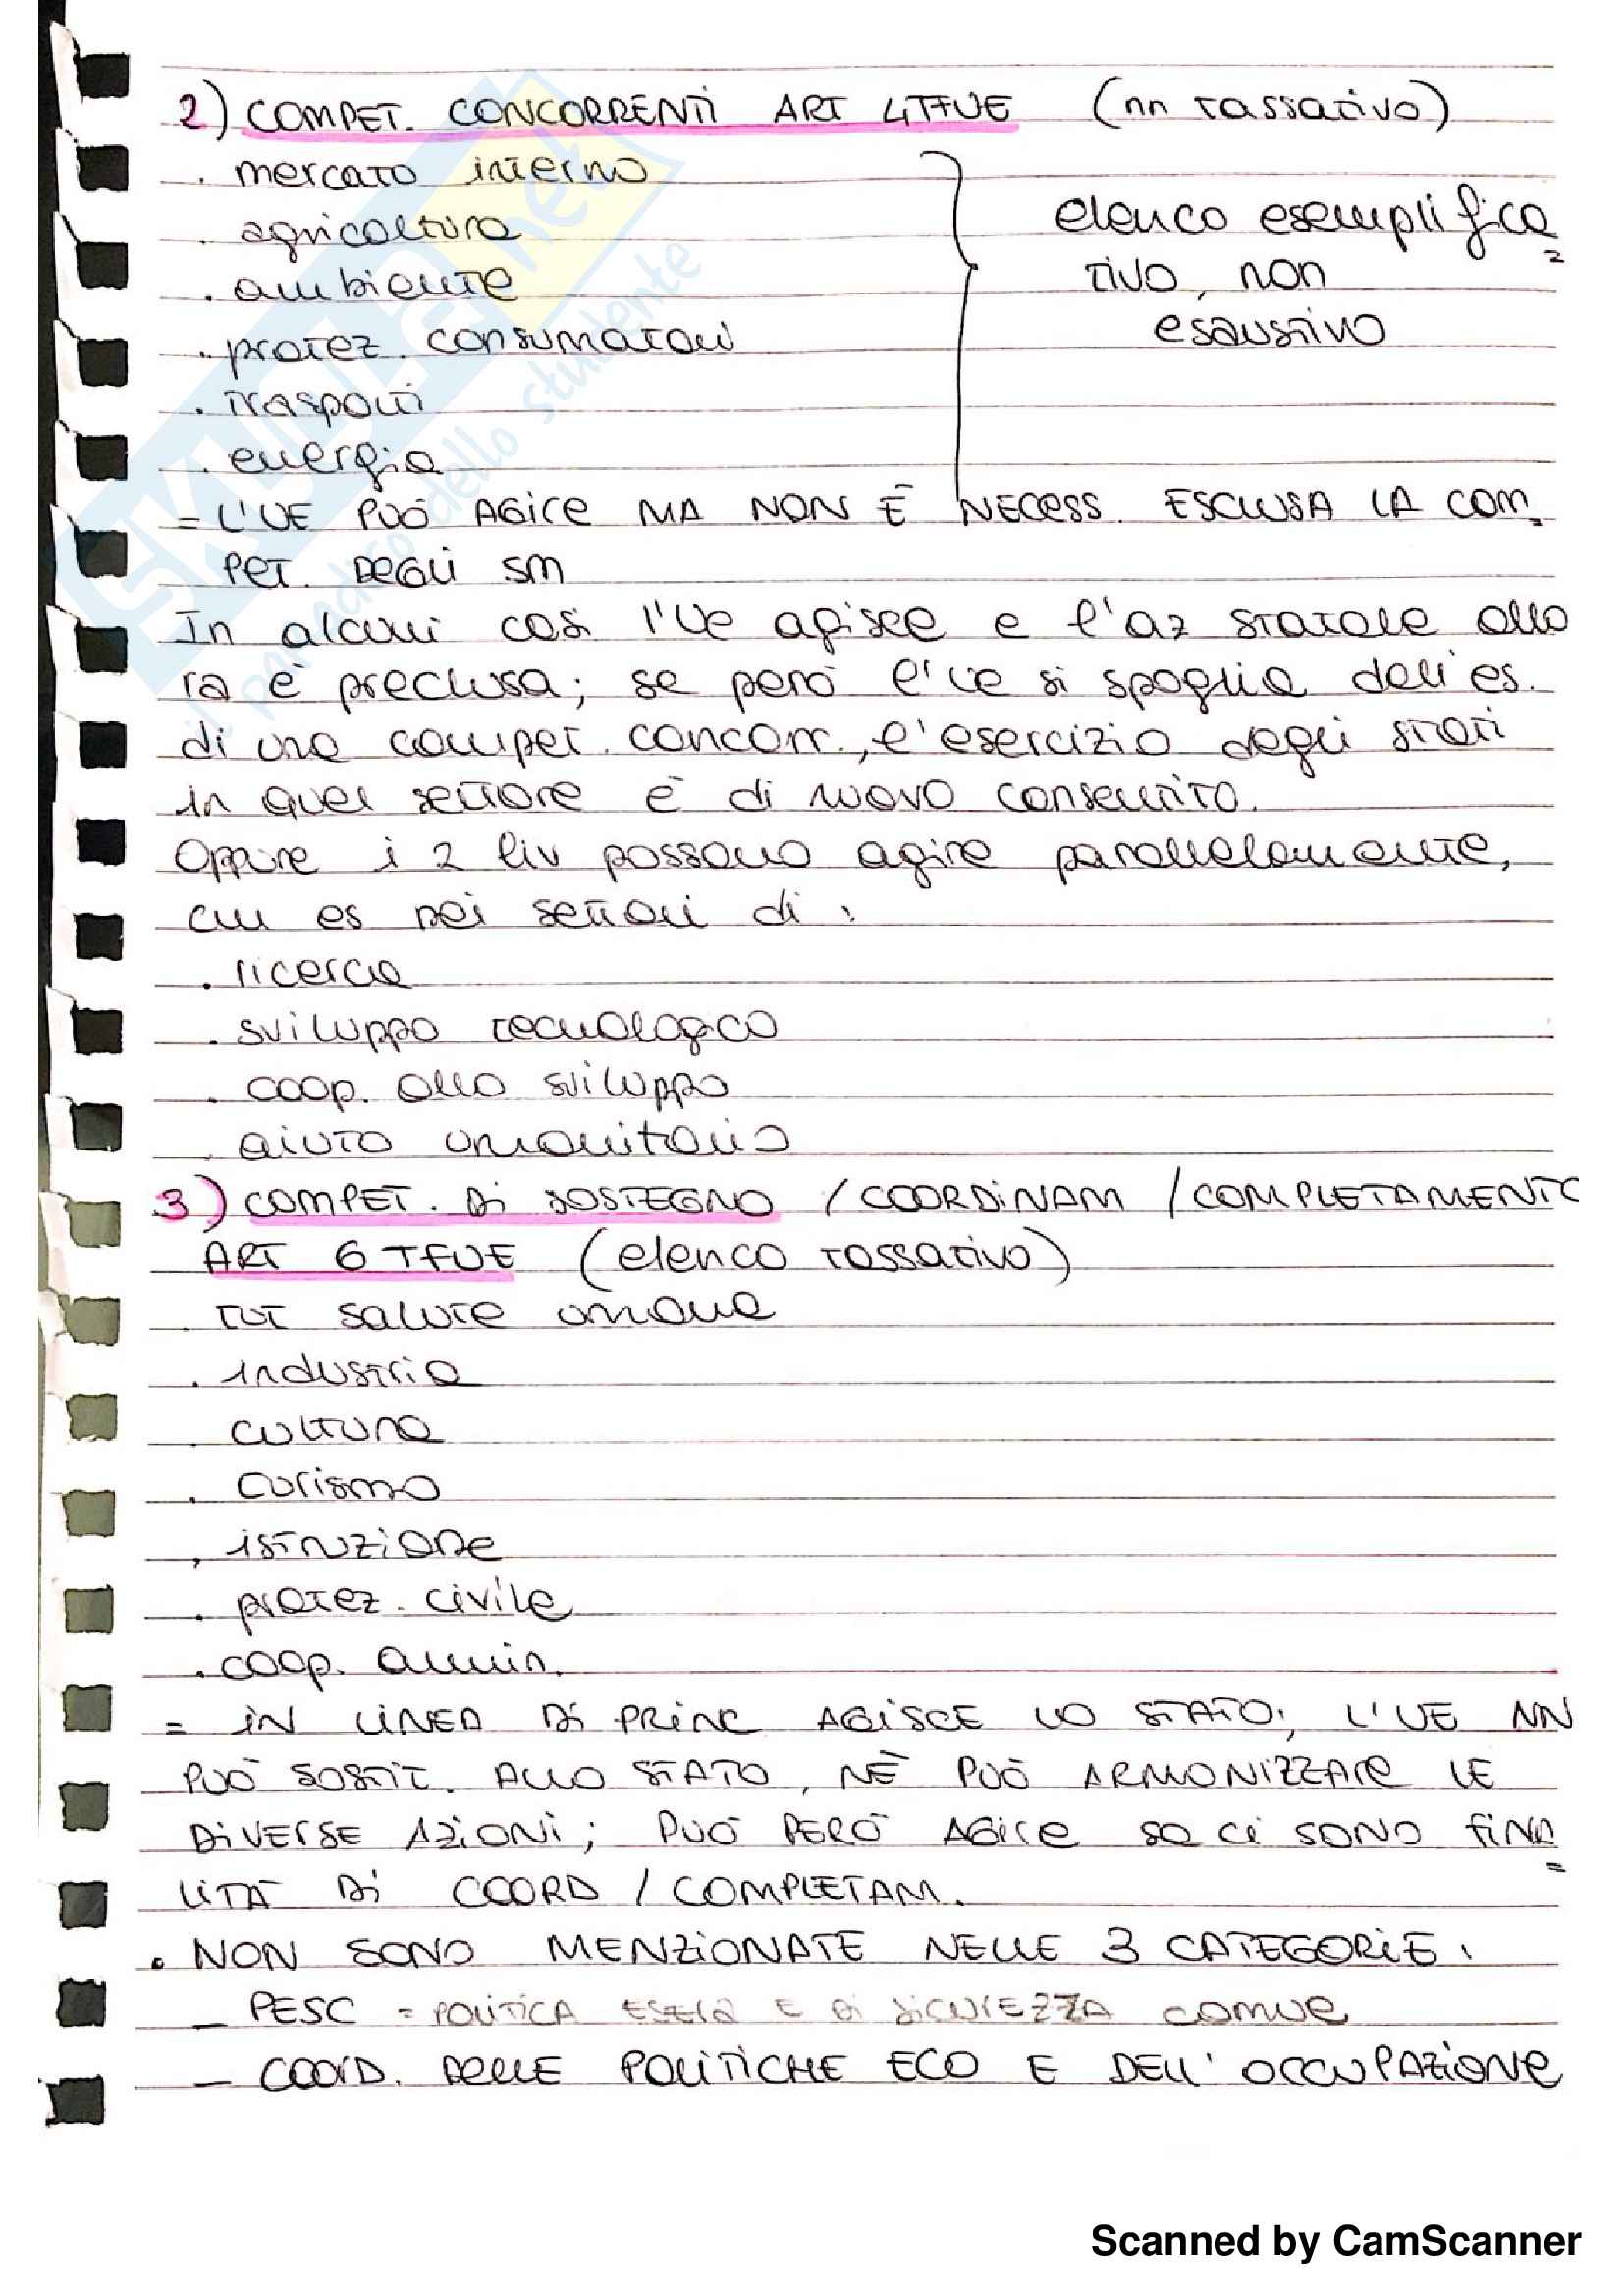 2) COMPET. CONCORRENTI ART 4TFUE (nn tassativo)
. mercato interno
. agricoltura
. ambiente
. protez. consumatori
. trasporti
. energia
elenco esemplifica=
tivo, non
esaustivo
= L'UE PUÒ AGIRE MA NON È NECESS. ESCLUSA LA COM=
PET. DEGLI SM
In alcuni casi l'Ue agisce e l'az statale allo
ra è preclusa; se però l'ue si spoglia dell'es.
di una compet. concorr., l'esercizio degli stati
in quel settore è di nuovo consentito.
Oppure i 2 liv possono agire parallelamente,
es nei settori di:
. ricerca
. sviluppo tecnologico
. coop. allo sviluppo
. aiuto umanitario
3) COMPET. Di SOSTEGNO / COORDINAM / COMPLETAMENTO
ART 6 TFUE (elenco tassativo)
. tut salute umana
. industria
. cultura
. turismo
. istruzione
. protez. civile
. coop. ammin.
= IN LINEA Di PRINC AGISCE LO STATO; L'UE NN
PUÒ SOSTIT. ALLO STATO, NÈ PUÒ ARMONIZZARE LE
DIVERSE AZIONI; PUÒ PERÒ AGIRE se ci SONO FINA=
LITÀ Di COORD / COMPLETAM.
. NON SONO MENZIONATE NELLE 3 CATEGORIE:
- PESC = POLITICA ESTERA E Di SICUREZZA comune
- COORD. DELLE POLITICHE ECO E DELL'OCCUPAZIONE
SKUOLA.net
il paradiso dello studente
Scanned by CamScanner